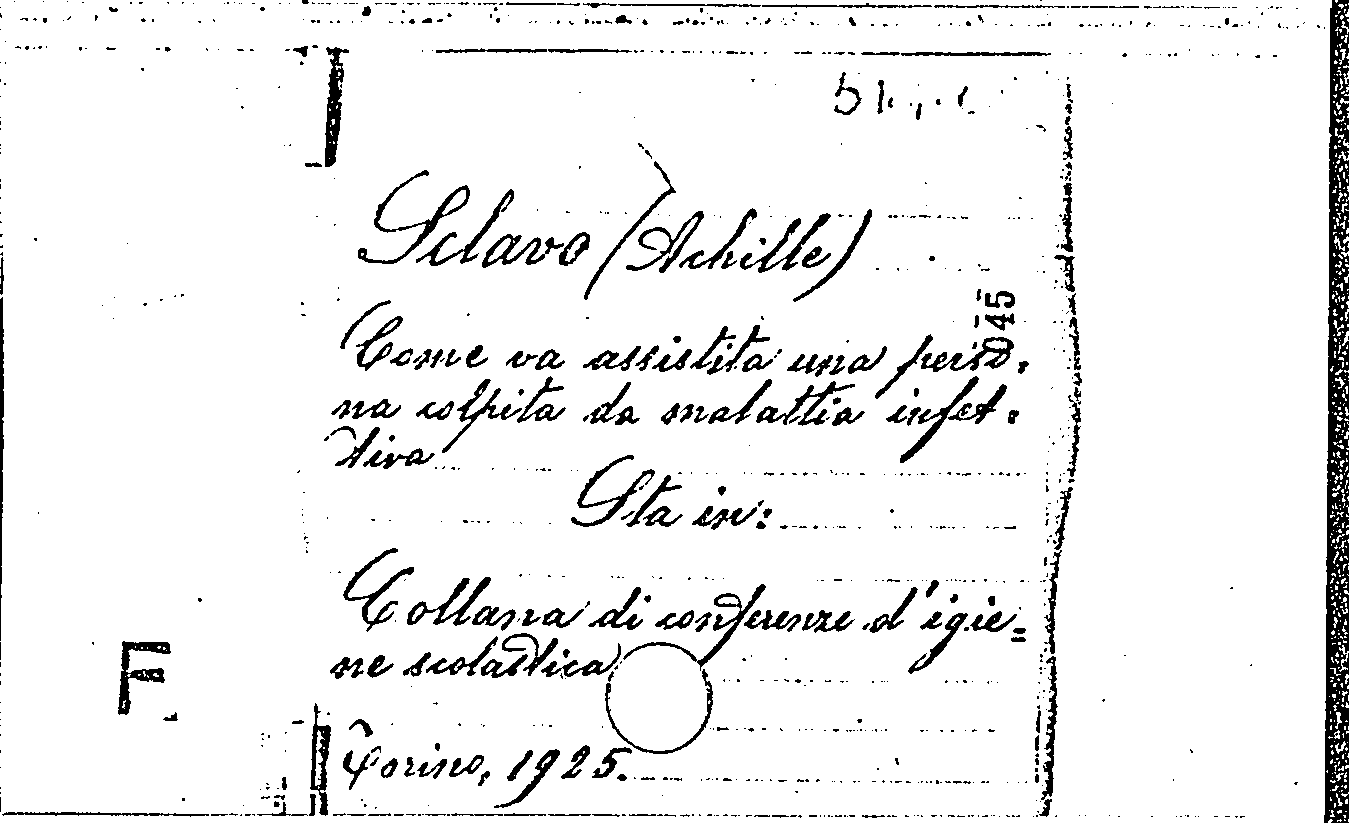 Sclavo (Achille)
045
Come va assistita una perso=
na colpita da malattia infet=
tiva
Sta in:
Collana di conferenze d'igie=
ne scolastica
F
Torino, 1925.